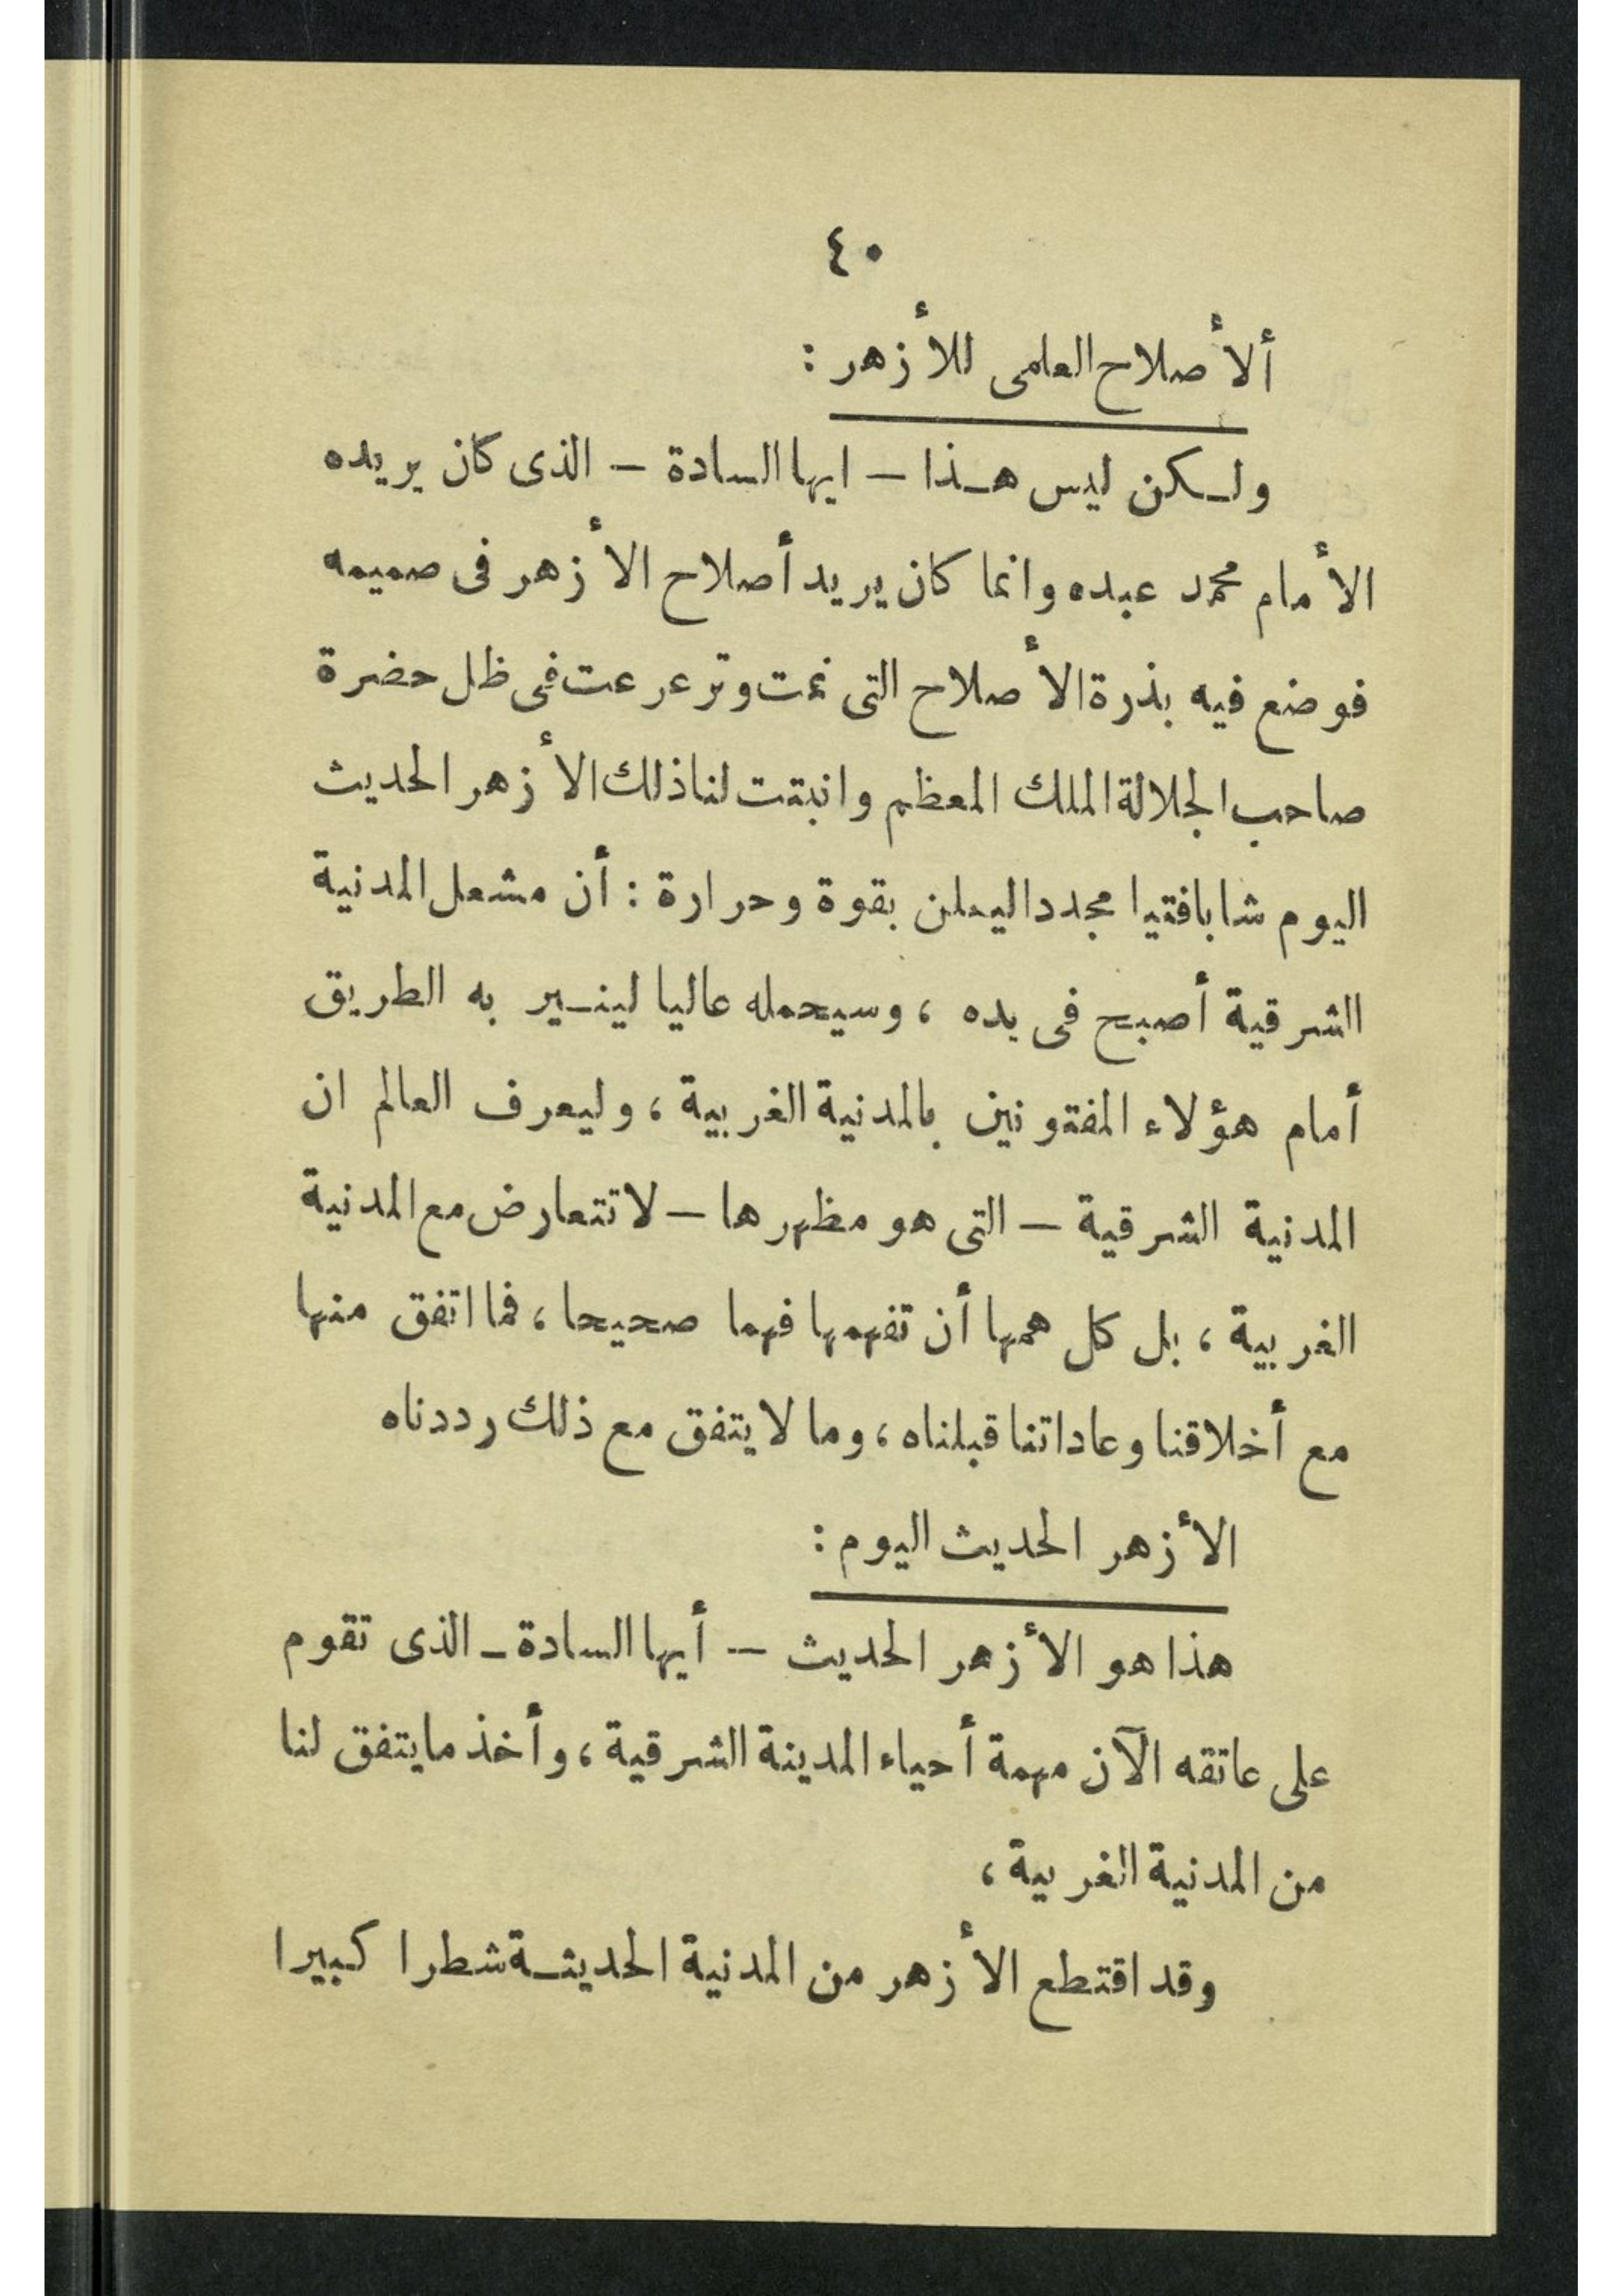 ٤٠
ألأصلاح العلمى للأزهر :
ولكن ليس هذا – ايها السادة – الذى كان يريده
الأمام محمد عبده وانما كان يريد أصلاح الأزهر فى صميمه
فوضع فيه بذرة الأصلاح التى نمت وترعرعت فى ظل حضرة
صاحب الجلالة الملك المعظم وانبتت لنا ذلك الأزهر الحديث
اليوم شابا فتيا مجددا ليعلن بقوة وحرارة : أن مشعل المدنية
الشرقية أصبح فى يده ، وسيحمله عاليا لينير به الطريق
أمام هؤلاء المفتونين بالمدنية الغربية ، وليعرف العالم ان
المدنية الشرقية – التى هو مظهرها – لا تتعارض مع المدنية
الغربية ، بل كل همها أن تفهمها فهما صحيحا ، فما اتفق منها
مع أخلاقنا وعاداتنا قبلناه ، وما لا يتفق مع ذلك رددناه
الأزهر الحديث اليوم :
هذا هو الأزهر الحديث – أيها السادة – الذى تقوم
على عاتقه الآن مهمة أحياء المدينة الشرقية ، وأخذ ما يتفق لنا
من المدنية الغربية ،
وقد اقتطع الأزهر من المدنية الحديثة شطرا كبيرا